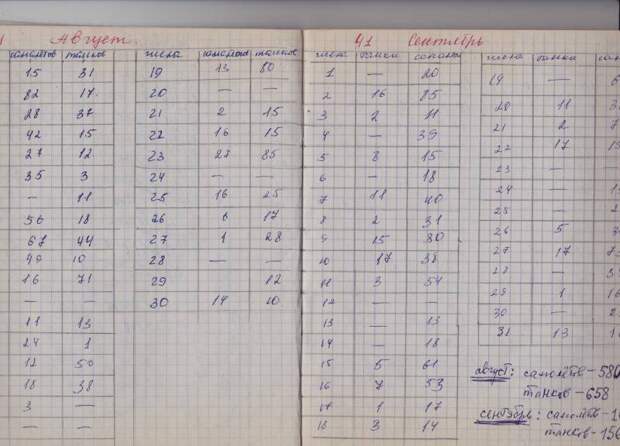 Август.
самолётов танков
15 31
82 17
28 37
42 15
27 12
35 3
— 11
56 18
67 44
49 10
16 71
— —
11 13
24 1
12 50
18 38
3 —
— —
числа самолётов танков
19 13 80
20 — —
21 2 15
22 16 15
23 27 85
24 — —
25 16 25
26 6 17
27 1 28
28 — —
29 12
30 14 10
41 Сентябрь
числа танки самолёты
1 — 20
2 16 85
3 2 11
4 — 39
5 8 15
6 — 18
7 11 40
8 2 31
9 15 80
10 17 38
11 3 54
12 — —
13 — 13
14 — 18
15 5 61
16 7 53
17 1 17
18 3 14
числа танки
19 —
20 11
21 2
22 17
23 —
24 —
25 —
26 5
27 17
28 —
29 1
30 —
31 13
август: самолётов - 580
танков - 658
сентябрь: самолётов -
танков - 156